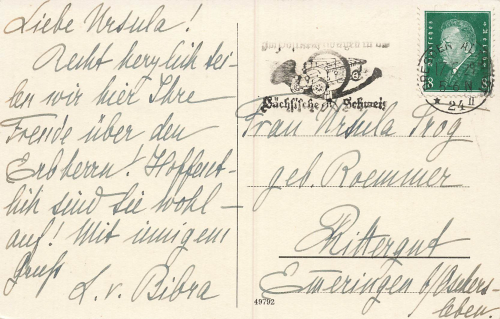 Liebe Ursula!
Recht herzlich tei-
len wir hier Ihre
Freude über den
Erbherrn! Hoffent-
lich sind sie wohl-
auf! Mit innigem
Gruß
L. v. Bibra
Sächsische Schweiz
24 II
3
Frau Ursula Trog
geb. Roemmer
Rittergut
Emeringen b/Oschers-
leben.
49792